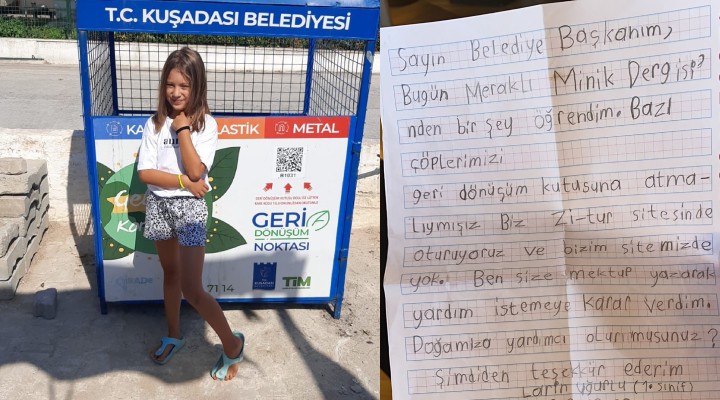 T.C. KUŞADASI BELEDİYESİ
KA
LASTİK
METAL
R1031
GERİ
DÖNÜŞÜM
NOKTASI
KUŞADASI
TİM
71 14
Sayın Belediye Başkanım,
Bugün Meraklı Minik Dergisi?
nden bir şey öğrendim. Bazı
çöplerimizi
geri dönüşüm kutusuna atma-
lıymışız Biz Zi-tur sitesinde
oturuyoruz ve bizim sitemizde
yok. Ben size mektup yazarak
yardım istemeye karar verdim.
Doğamıza yardımcı olurmusunuz?
Şimdiden teşekkür ederim
Larin (1. sınıf)